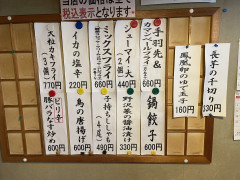 当店の価格は全て
税込表示となります。
長芋の千切り
330円
鳳凰卵のゆで玉子
160円
手羽先&
カマンベールフライ
660円
鍋餃子
600円
シューマイ・大
(2個)
440円
野沢菜の醤油漬け
330円
ミックスフライ
660円
子持ちししゃも
490円
イカの塩辛
220円
鳥の唐揚げ
600円
大粒カキフライ
(3個)
770円
ピリ辛
豚バラもやし炒め
600円